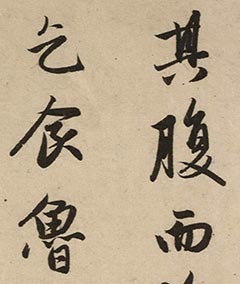 其腹而
乞食魯